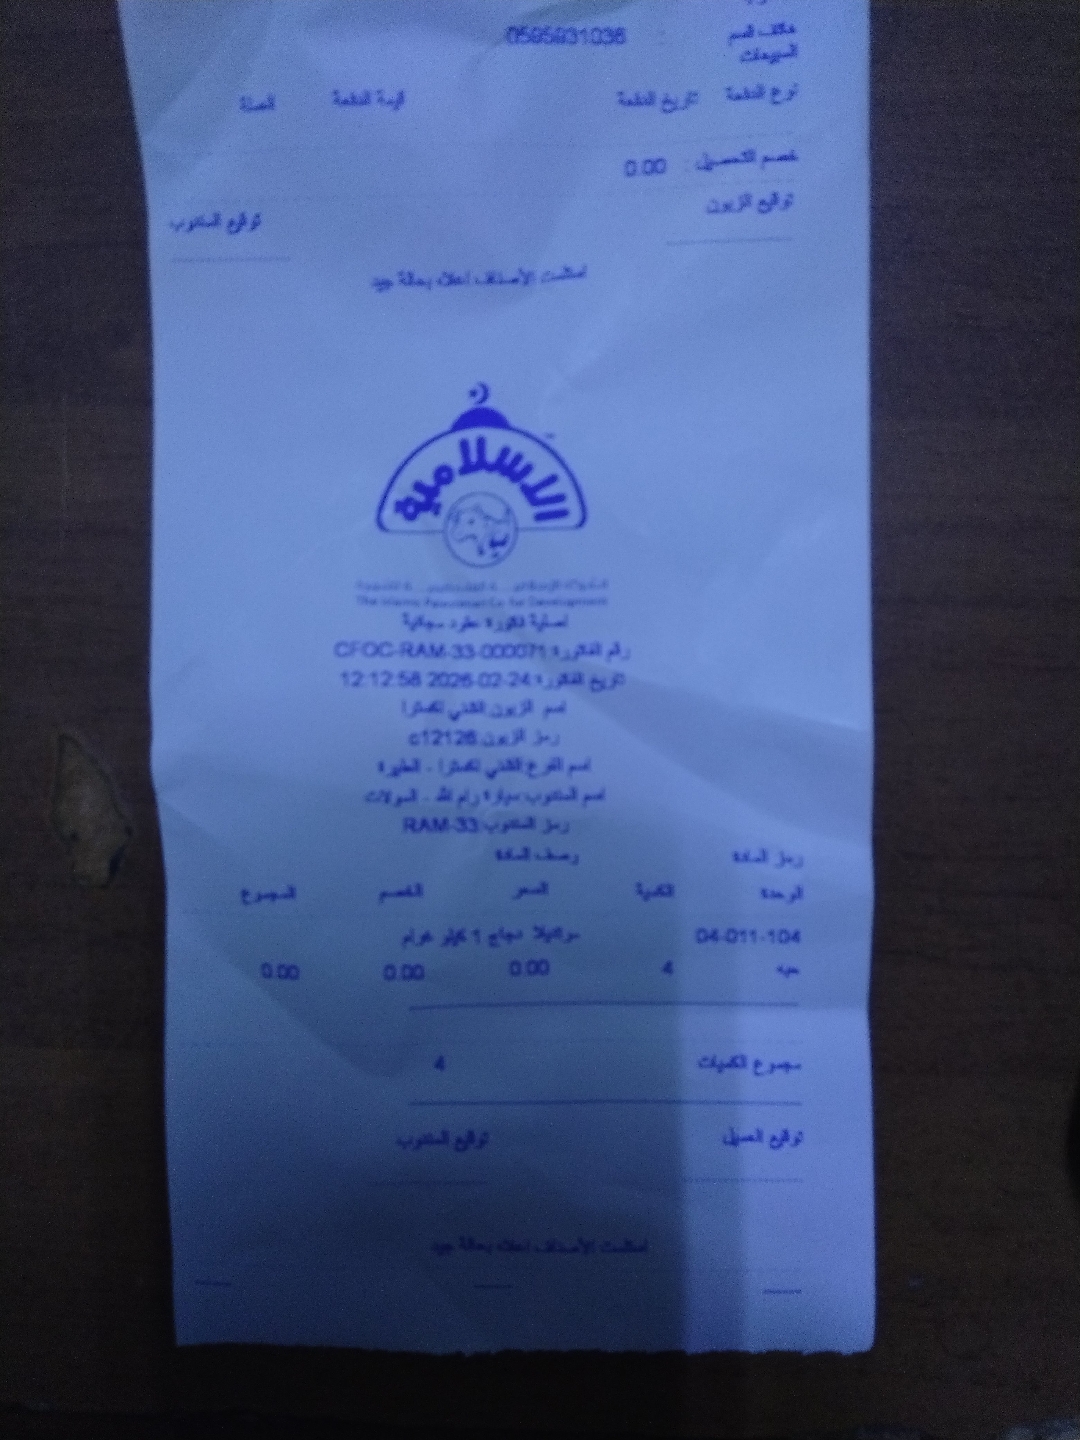 هاتف قسم : 0595931036
المبيعات
نوع الدفعة تاريخ الدفعة قيمة الدفعة العملة
خصم التحصيل : 0.00
توقيع الزبون توقيع المندوب
استلمت الأصناف اعلاه بحالة جيد
الإسلامية
The Islamic Palestinian Co for Development
اصلية فاتورة مواد مجانية
رقم الفاتورة: CFOC-RAM-33-000071
تاريخ الفاتورة: 2026-02-24 12:12:58
اسم الزبون: الشني اكسترا
رمز الزبون: c12126
اسم الفرع: الشني اكسترا - الطيرة
اسم المندوب: سيارة رام الله - السولات
رمز المندوب: RAM-33
رمز المادة وصف المادة
الوحدة الكمية السعر الخصم المجموع
04-011-104 مرتديلا دجاج 1 كيلو غرام
حبه 4 0.00 0.00 0.00
مجموع الكميات 4
توقيع العميل توقيع المندوب
استلمت الأصناف اعلاه بحالة جيد